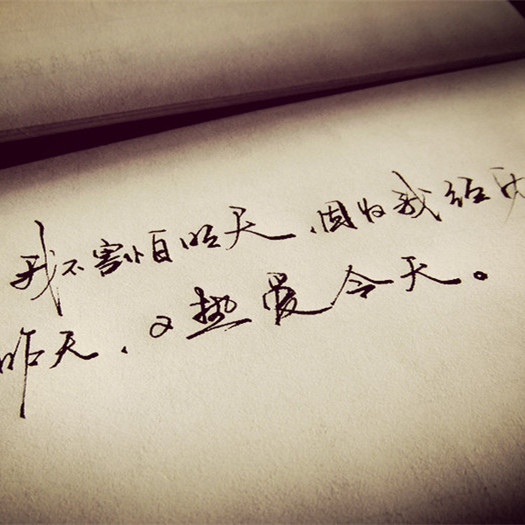 我不害怕明天,因为我经历
昨天,又热爱今天。